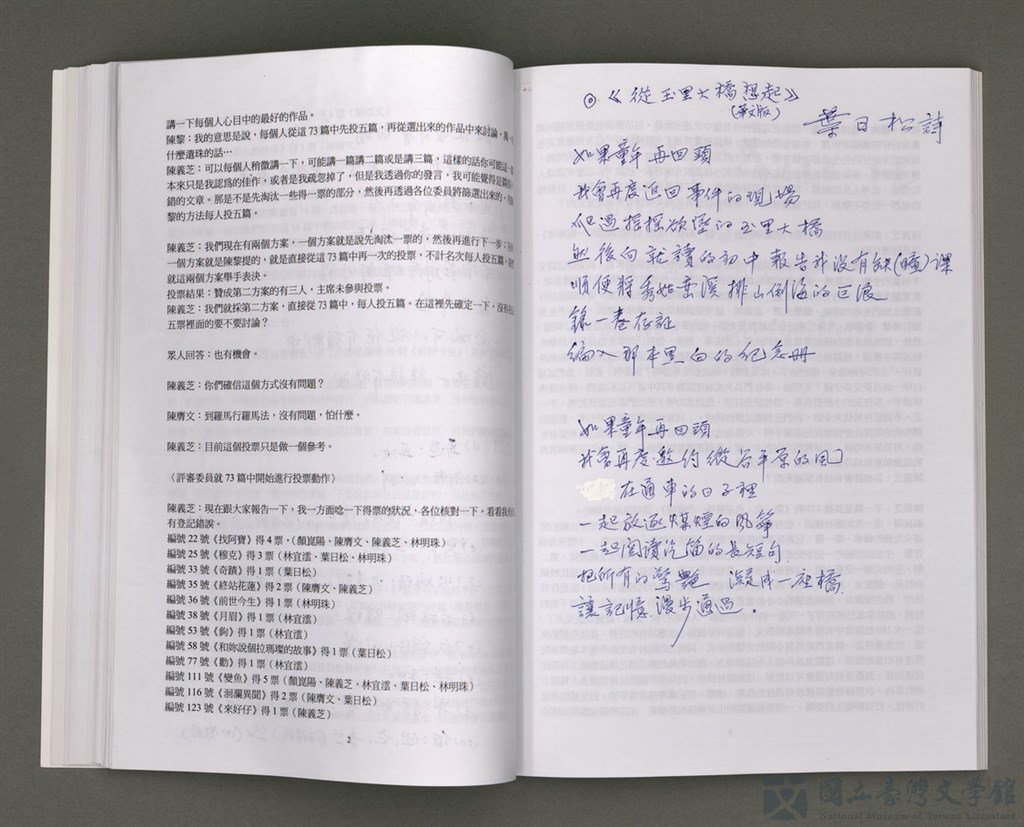 講一下每個人心目中的最好的作品。
陳黎：我的意思是說，每個人從這 73 篇中先投五篇，再從選出來的作品中來討論，萬一
什麼遺珠的話…
陳義芝：可以每個人稍微講一下，可能講一篇講二篇或是講三篇，這樣的話你可能
本來只是我認為的佳作，或者是我疏忽掉了，但是我透過你的發言，我可能覺得是篇
錯的文章。那是不是先淘汰一些得一票的部分，然後再透過各位委員將篩選出來的，
黎的方法每人投五篇。
陳義芝：我們現在有兩個方案，一個方案就是說先淘汰一票的，然後再進行下一步；
一個方案就是陳黎提的，就是直接從這 73 篇中再一次的投票，不計名次每人投五篇。
就這兩個方案舉手表決。
投票結果：贊成第二方案的有三人，主席未參與投票。
陳義芝：我們就採第二方案，直接從 73 篇中，每人投五篇。在這裡先確定一下，沒有
五票裡面的要不要討論？
眾人回答：也有機會。
陳義芝：你們確信這個方式沒有問題？
陳膺文：到羅馬行羅馬法，沒有問題，怕什麼。
陳義芝：目前這個投票只是做一個參考。
〈評審委員就 73 篇中開始進行投票動作〉
陳義芝：現在跟大家報告一下，我一方面唸一下得票的狀況，各位核對一下，看看我
有登記錯誤。
編號 22 號《找阿寶》得 4 票，(顏崑陽、陳膺文、陳義芝、林明珠)
編號 25 號《穆克》得 3 票（林宜澐、葉日松、林明珠）
編號 33 號《奇蹟》得 1 票（葉日松）
編號 35 號《終站花蓮》得 2 票（陳膺文、陳義芝）
編號 36 號《前世今生》得 1 票（林明珠）
編號 38 號《月眉》得 1 票（林宜澐）
編號 53 號《鉤》得 1 票（林宜澐）
編號 58 號《和妳說個拉瑪璨的故事》得 1 票（葉日松）
編號 77 號《勸》得 1 票（林宜澐）
編號 111 號《變魚》得 5 票（顏崑陽、陳義芝、林宜澐、葉日松、林明珠）
編號 116 號《洄瀾異聞》得 2 票（陳膺文、葉日松）
編號 123 號《來好仔》得 1 票（陳義芝）
2
◎《從玉里大橋想起》
(華文版)
葉日松詩
如果童年再回頭
我會再度返回事件的現場
爬過搖搖欲墜的玉里大橋
然後向就讀的初中報告我沒有缺(曠)課
順便將秀姑巒溪排山倒海的巨浪
錄一卷存証
編入那本黑白的紀念冊
如果童年再回頭
我會再度邀約縱谷平原的風
在通車的日子裡
一起放逐煤煙的風箏
一起閱讀汽笛的長短句
把所有的驚艷 凝成一座橋
讓記憶漫步通過。
國立臺灣文學館
National Museum of Taiwan Literature